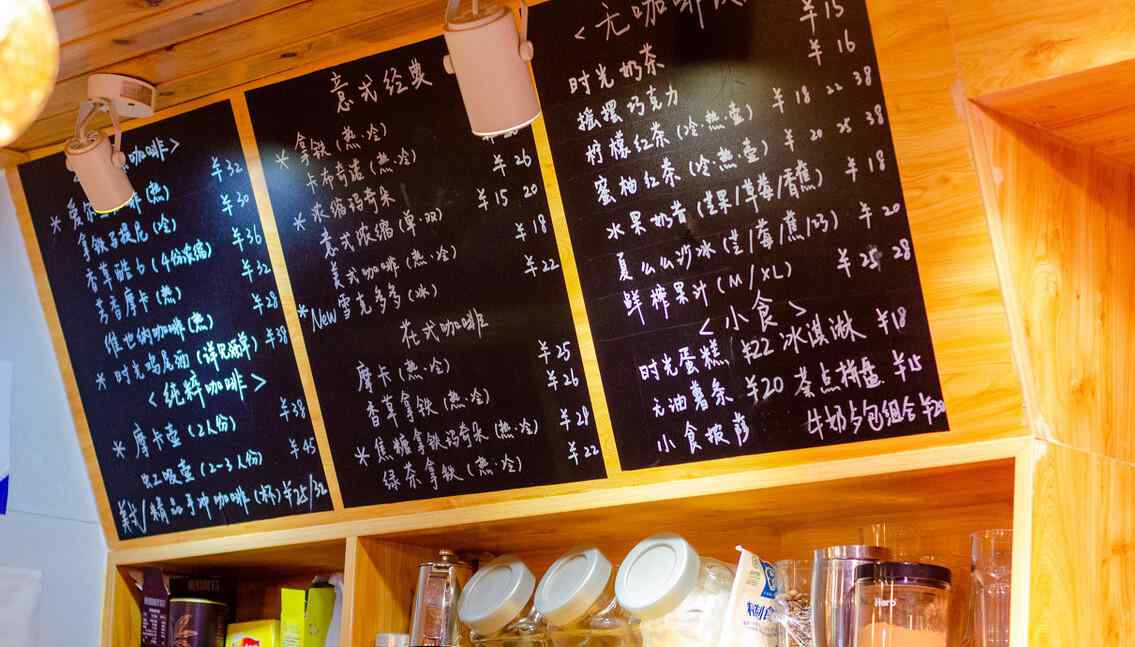 咖啡>
¥32
(热)
拿铁玛提尼(冷) ¥30
香草酷6(4份浓缩) ¥36
芳香摩卡(热) ¥32
维也纳咖啡(热) ¥28
*时光鸡尾酒(详见酒单) ¥38
<纯粹咖啡>
*摩卡壶(2人份) ¥38
虹吸壶(2-3人份) ¥45
美式/精品手冲咖啡(杯)¥25/32
意式经典
*拿铁(热·冷)
卡布奇诺(热·冷) ¥26
*浓缩玛奇朵 ¥15 20
意式浓缩(单·双)
美式咖啡(热·冷) ¥18
*New雪克多多(冰) ¥22
花式咖啡
摩卡(热·冷) ¥25
香草拿铁(热·冷) ¥26
*焦糖拿铁玛奇朵(热·冷)
绿茶拿铁(热·冷) ¥22
<无咖啡
¥15
时光奶茶 ¥16
摇摆巧克力
柠檬红茶(冷·热·壶) ¥18 22 38
蜜柚红茶(冷·热·壶) ¥20 25 38
水果奶昔(芒果/草莓/香蕉) ¥18
夏么么沙冰(芒/莓/蕉/巧) ¥20
鲜榨果汁(M/XL) ¥25 28
<小食>
时光蛋糕 ¥22 冰淇淋 ¥18
无油薯条 ¥20 茶点拼盘 ¥15
小食披萨 牛奶夕包组合¥20
HERSHEY'S
Hero